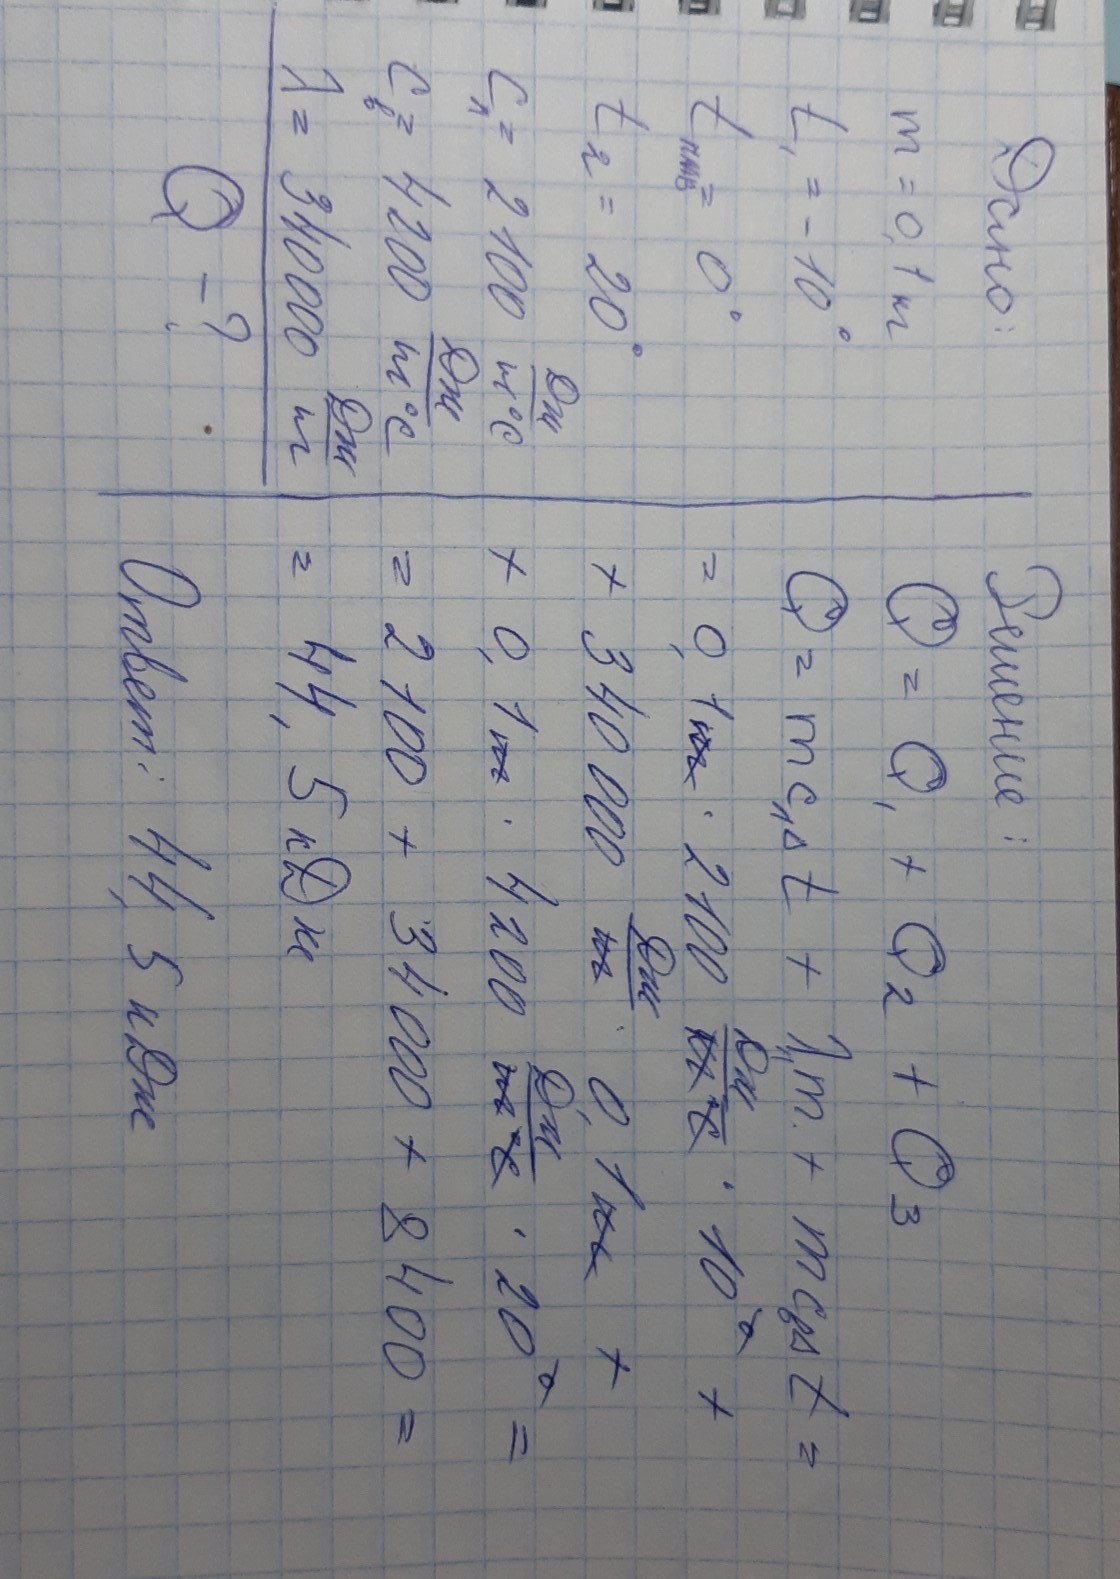 Дано:
m = 0,1 кг
t₁ = -10°
tплав = 0°
t₂ = 20°
Cл = 2100 Дж/кг°С
Cв = 4200 Дж/кг°С
λ = 340000 Дж/кг
Q - ?
Решение:
Q = Q₁ + Q₂ + Q₃
Q = mcл∆t + λm + mcв∆t =
= 0,1кг · 2100 Дж/кг°С · 10° +
+ 340 000 Дж/кг · 0,1кг +
+ 0,1кг · 4200 Дж/кг°С · 20° =
= 2100 + 34000 + 8400 =
= 44,5 кДж
Ответ: 44,5 кДж